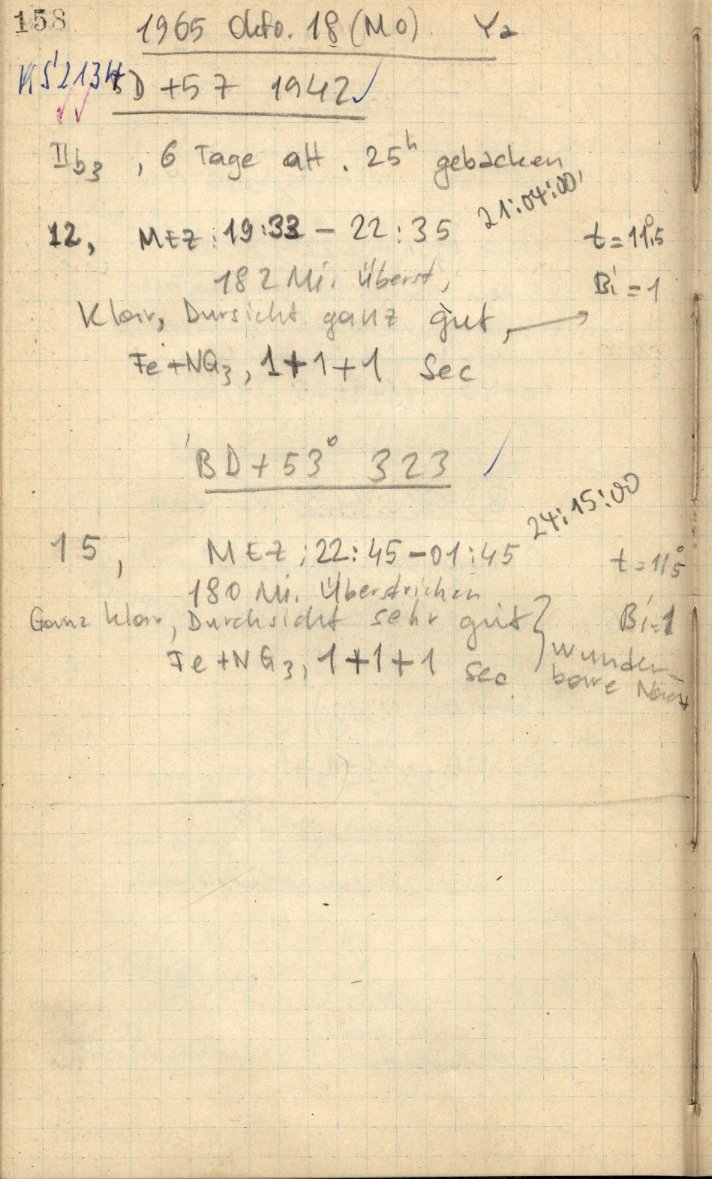 158
1965 Okto. 18 (Mo) Y2
KS 2134
BD +57 1942 ✓
IIb3, 6 Tage alt. 25h gebacken
21:04:00
12, MEZ: 19:33 – 22:35 t = 11°,5
182 Mi. Überst, Bi = 1
Klar, Dursicht ganz gut, →
Fe+NG3, 1+1+1 Sec
BD+53° 323 ✓
24:15:00
15, MEZ: 22:45–01:45 t = 11°5
180 Mi. Überstrichen
Ganz klar, Durchsicht sehr gut } Bi=1
Fe+NG3, 1+1+1 sec wunder-
bare Nacht